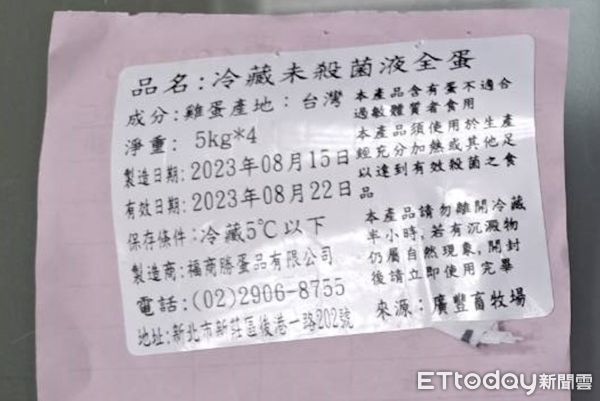 品名:冷藏未殺菌液全蛋
成分:雞蛋產地:台灣
淨重: 5kg*4
製造日期:2023年08月15日
有效日期:2023年08月22日
保存條件:冷藏5℃以下
製造商:福商勝蛋品有限公司
電話:(02)2906-8755
地址:新北市新莊區後港一路202號
本產品含有蛋不適合
過敏體質者食用
本產品須使用於生產
經充分加熱或其他足
以達到有效殺菌之食
品
本產品請勿離開冷藏
半小時,若有沉澱物
仍屬自然現象,開封
後請立即使用完畢
來源:廣豐畜牧場
ETtoday新聞雲